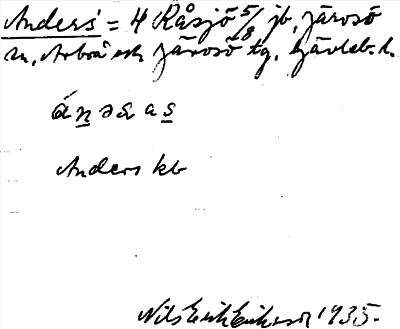 Anders' = 4 Råsjö 5/8 jb, Järvsö
sn, Arbrå och Järvsö tg, Gävleb. l.
á n ə ɛ a s
Anders kb
Nils Erik Eriksson 1935.